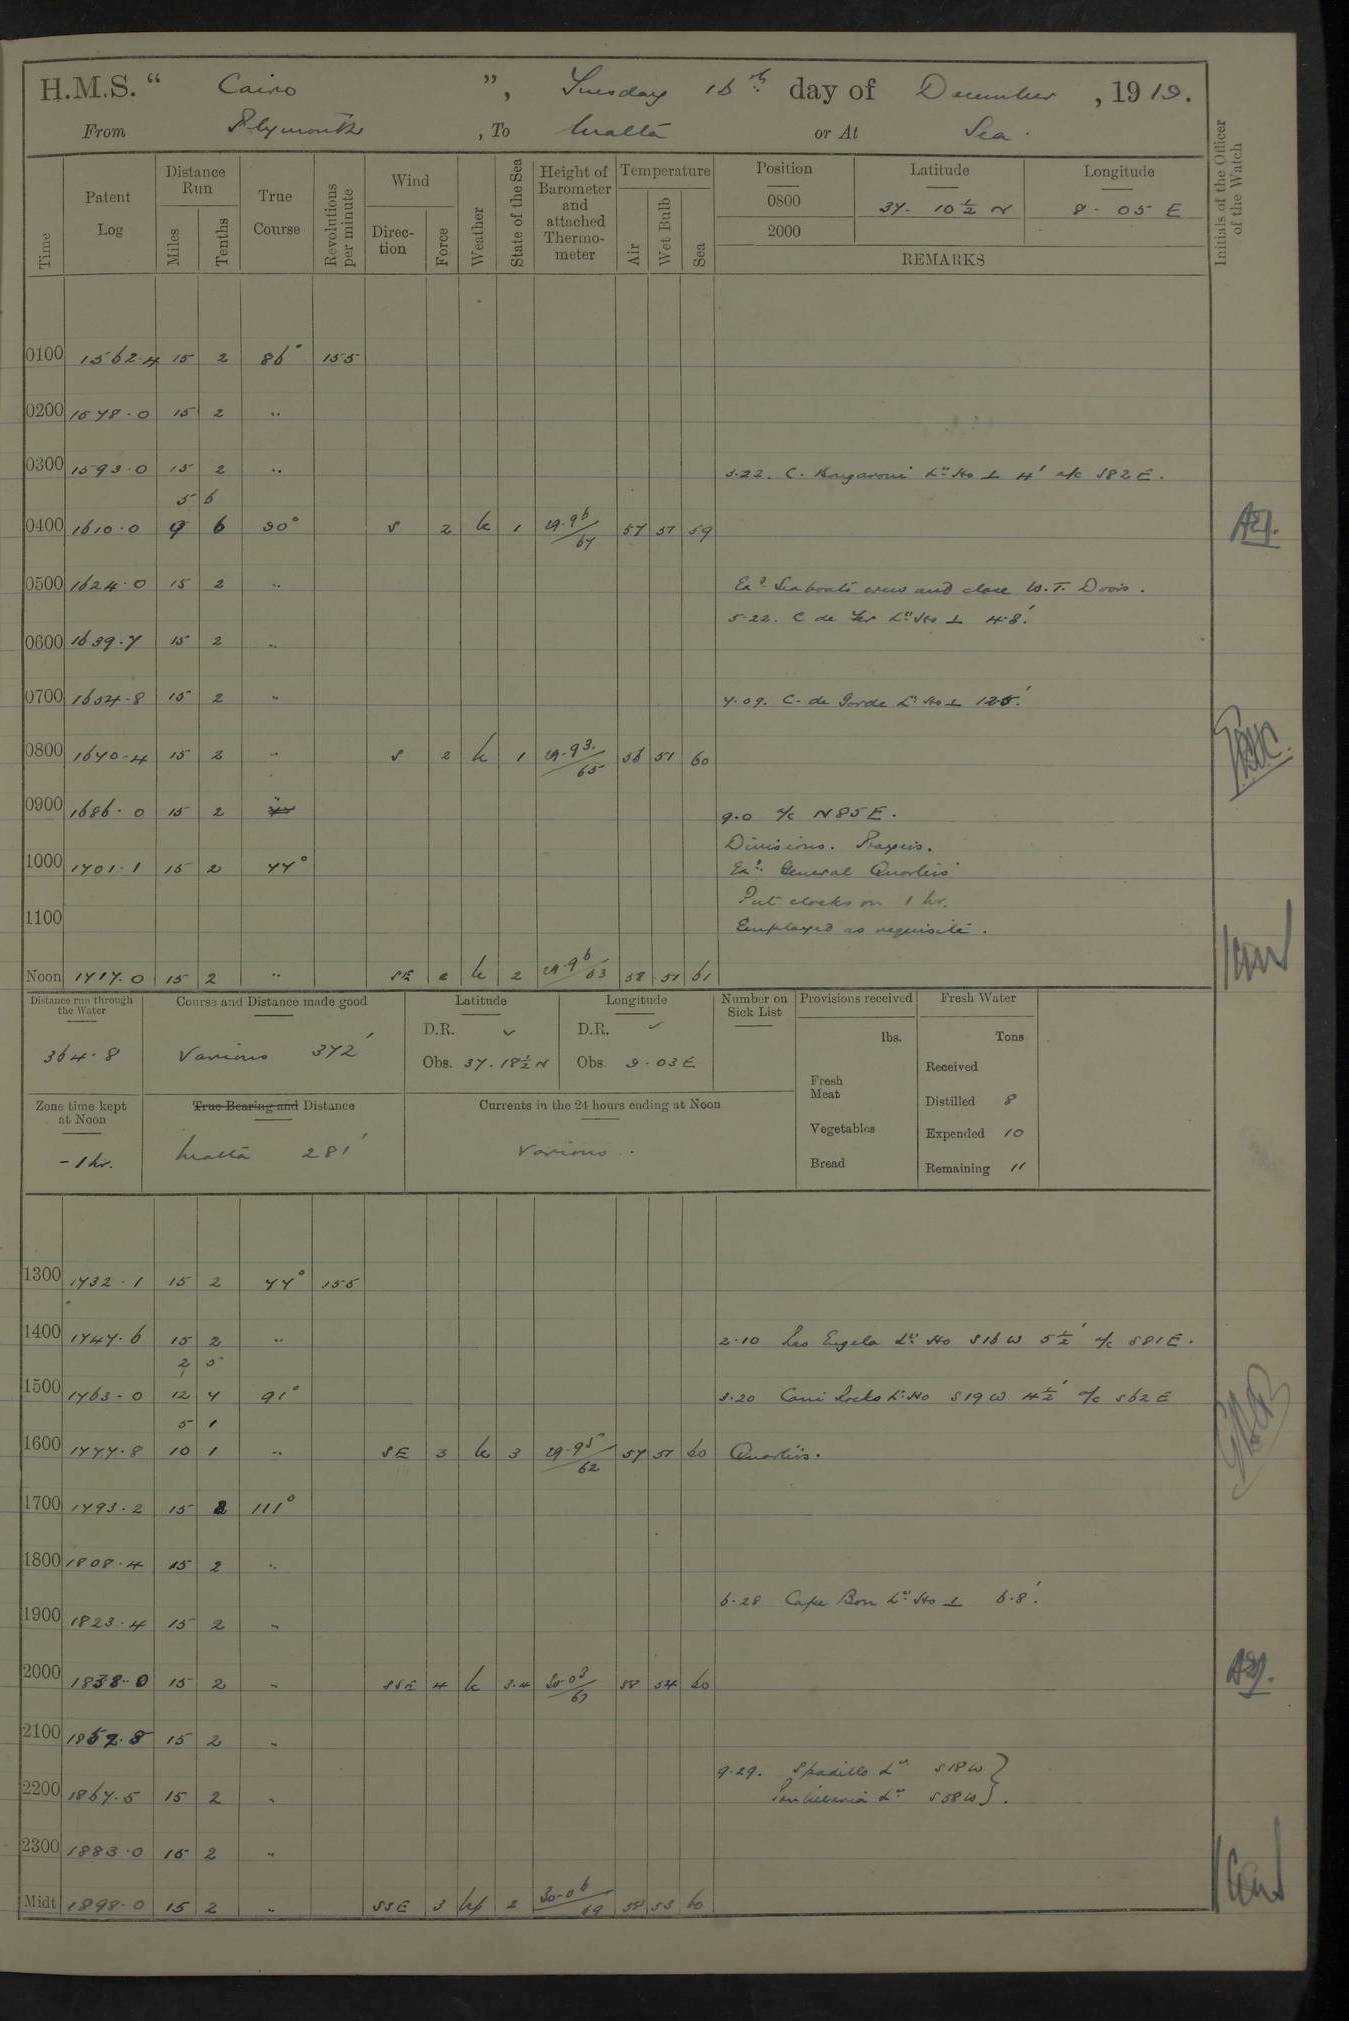 H.M.S. “ Cairo ”, Tuesday 16th day of December, 1919.
From Plymouth, To Malta or At Sea.
Initials of the Officer of the Watch
Time
Patent Log
Distance Run
Miles
Tenths
True Course
Revolutions per minute
Wind
Direction
Force
Weather
State of the Sea
Height of Barometer and attached Thermometer
Temperature
Air
Wet Bulb
Sea
Position Latitude Longitude
0800 37-10½ N 8-05 E
2000
REMARKS
0100 1562.4 15 2 86° 155
0200 1578.0 15 2 ..
0300 1593.0 15 2 .. 3.22. C. Lt Ho ⊥ 4' a/c S82E.
5 6
0400 1610.0 9 6 90° S 2 b 1 29.96/67 57 51 59
0500 1624.0 15 2 .. Exd Seaboats crew and close W.T. Doors.
5.22. C de Fer Lt Ho ⊥ 4.8'
0600 1639.7 15 2 ..
0700 1654.8 15 2 .. 7.09. C. de Garde Lt Ho ⊥ 12.5'
0800 1670.4 15 2 .. S 2 b 1 29.93/65 56 51 60
0900 1686.0 15 2 .. 9.0 a/c N85E.
Divisions. Prayers.
1000 1701.1 15 2 77° Exd General Quarters
Put clocks on 1 hr.
1100 Employed as requisite.
Noon 1717.0 15 2 .. SE 2 b 2 29.96/63 58 51 61
Distance run through the Water
364.8
Course and Distance made good
Various 372'
Latitude
D.R. ✓
Obs. 37.18½ N
Longitude
D.R. ✓
Obs. 9.03 E
Number on Sick List
Provisions received
lbs.
Fresh Meat
Vegetables
Bread
Fresh Water
Tons
Received
Distilled 8
Expended 10
Remaining 11
Zone time kept at Noon
-1 hr.
True Bearing and Distance
Malta 281'
Currents in the 24 hours ending at Noon
Various.
1300 1732.1 15 2 77° 155
1400 1747.6 15 2 .. 2.10 Ras Engela Lt Ho S16W 5½' a/c S81E.
2 5
1500 1763.0 12 7 91° 3.20 Cani Rocks Lt Ho S19W 4½' a/c S62E
5 1
1600 1777.8 10 1 .. SE 3 b 3 29.95/62 57 51 60 Quarters.
1700 1793.2 15 2 111°
1800 1808.4 15 2 ..
6.28 Cape Bon Lt Ho ⊥ 6.8'
1900 1823.4 15 2 ..
2000 1838.0 15 2 .. SSE 4 b 3.4 30.03/67 58 54 60
2100 1852.8 15 2 ..
9.29. Spadillo Lt S18W
2200 1867.5 15 2 .. Lt S58W
2300 1883.0 15 2 ..
Midt 1898.0 15 2 .. SSE 3 2 30.06/69 58 53 60